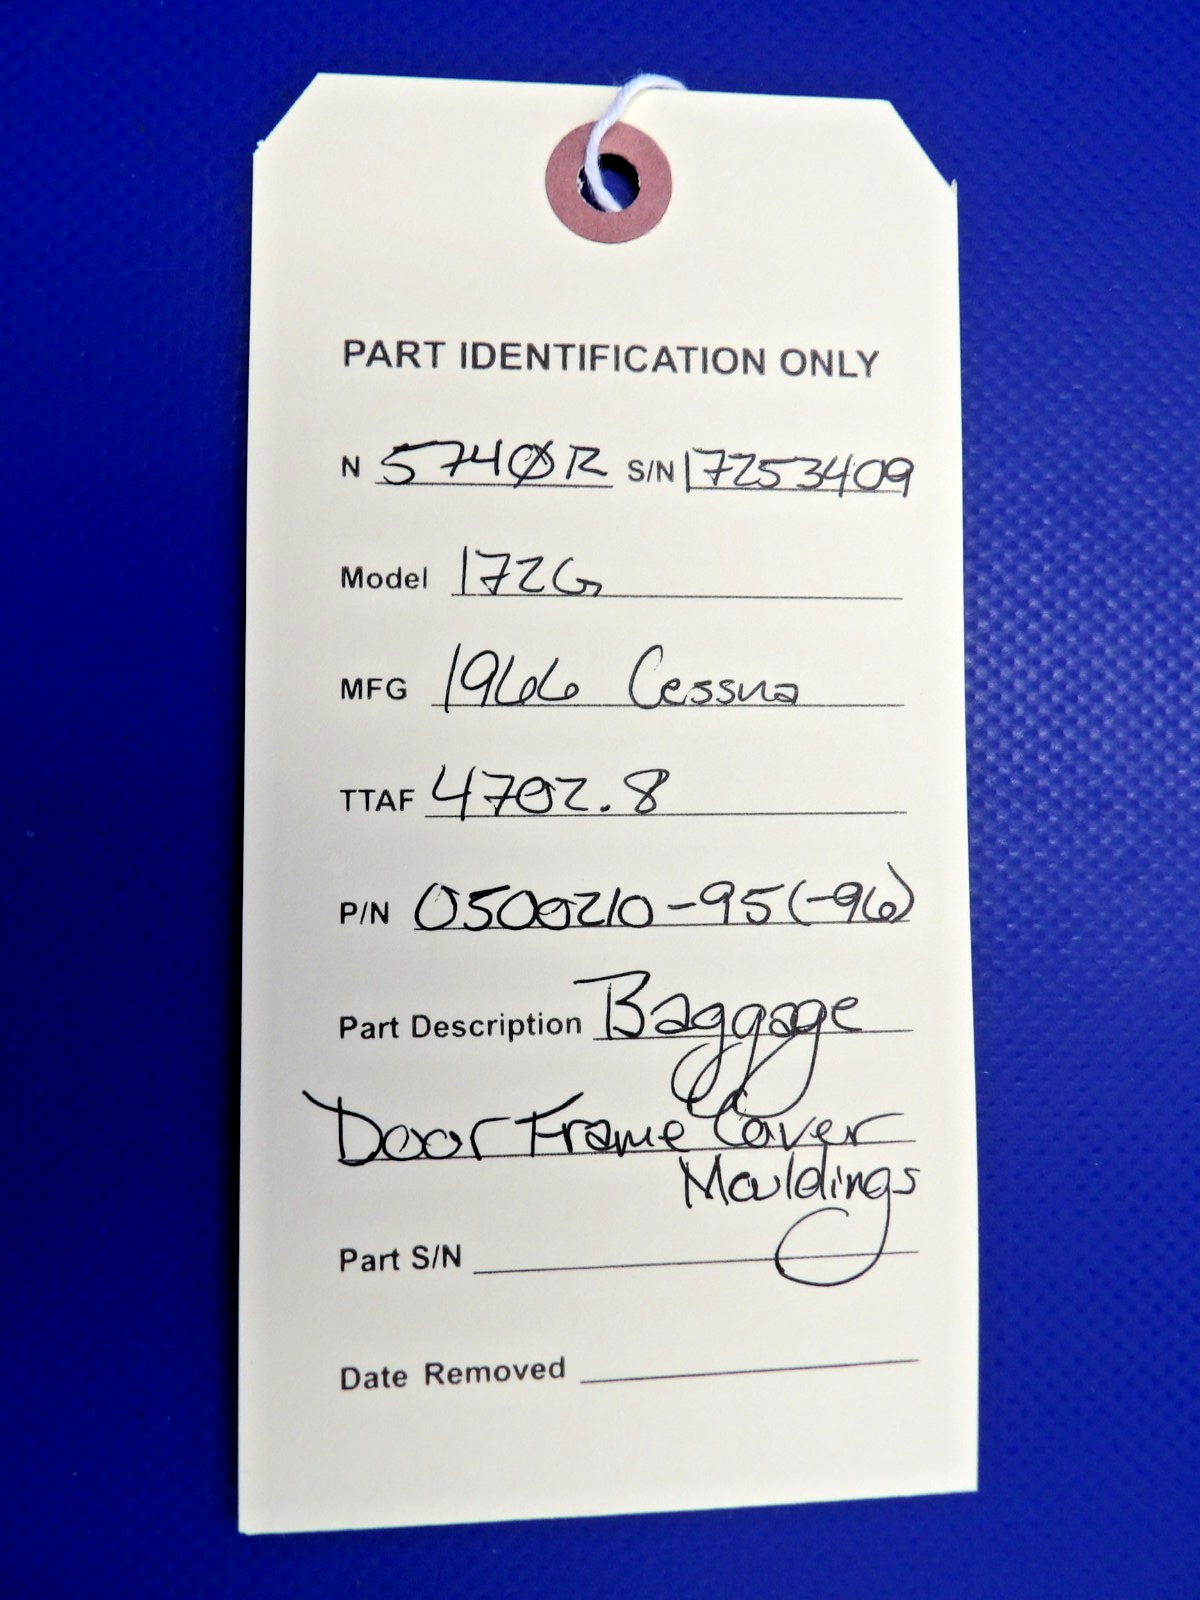 PART IDENTIFICATION ONLY
N 5740R S/N 17253409
Model 172G
MFG 1966 Cessna
TTAF 4702.8
P/N 0500210-95(-96)
Part Description Baggage
Door Frame Cover
Mouldings
Part S/N
Date Removed